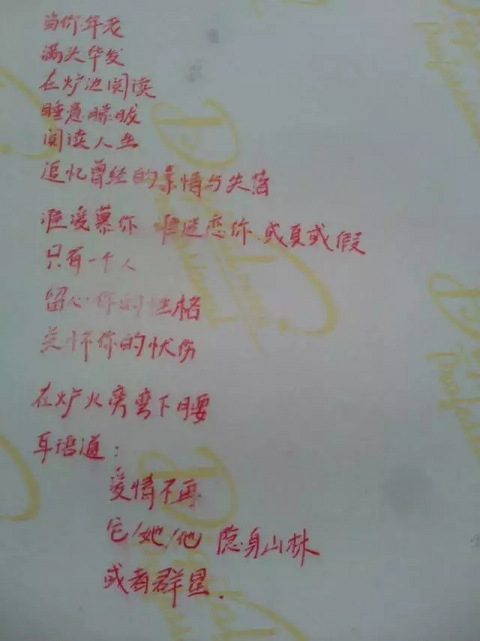 当你年老
满头华发
在炉边阅读
睡意朦胧
阅读人生
追忆曾经的柔情与失落
谁爱慕你 谁迷恋你 或真或假
只有一个人
留心你的性格
关怀你的忧伤
在炉火旁弯下腰
耳语道:
爱情不再
它/她/他 隐身山林
或者群星.